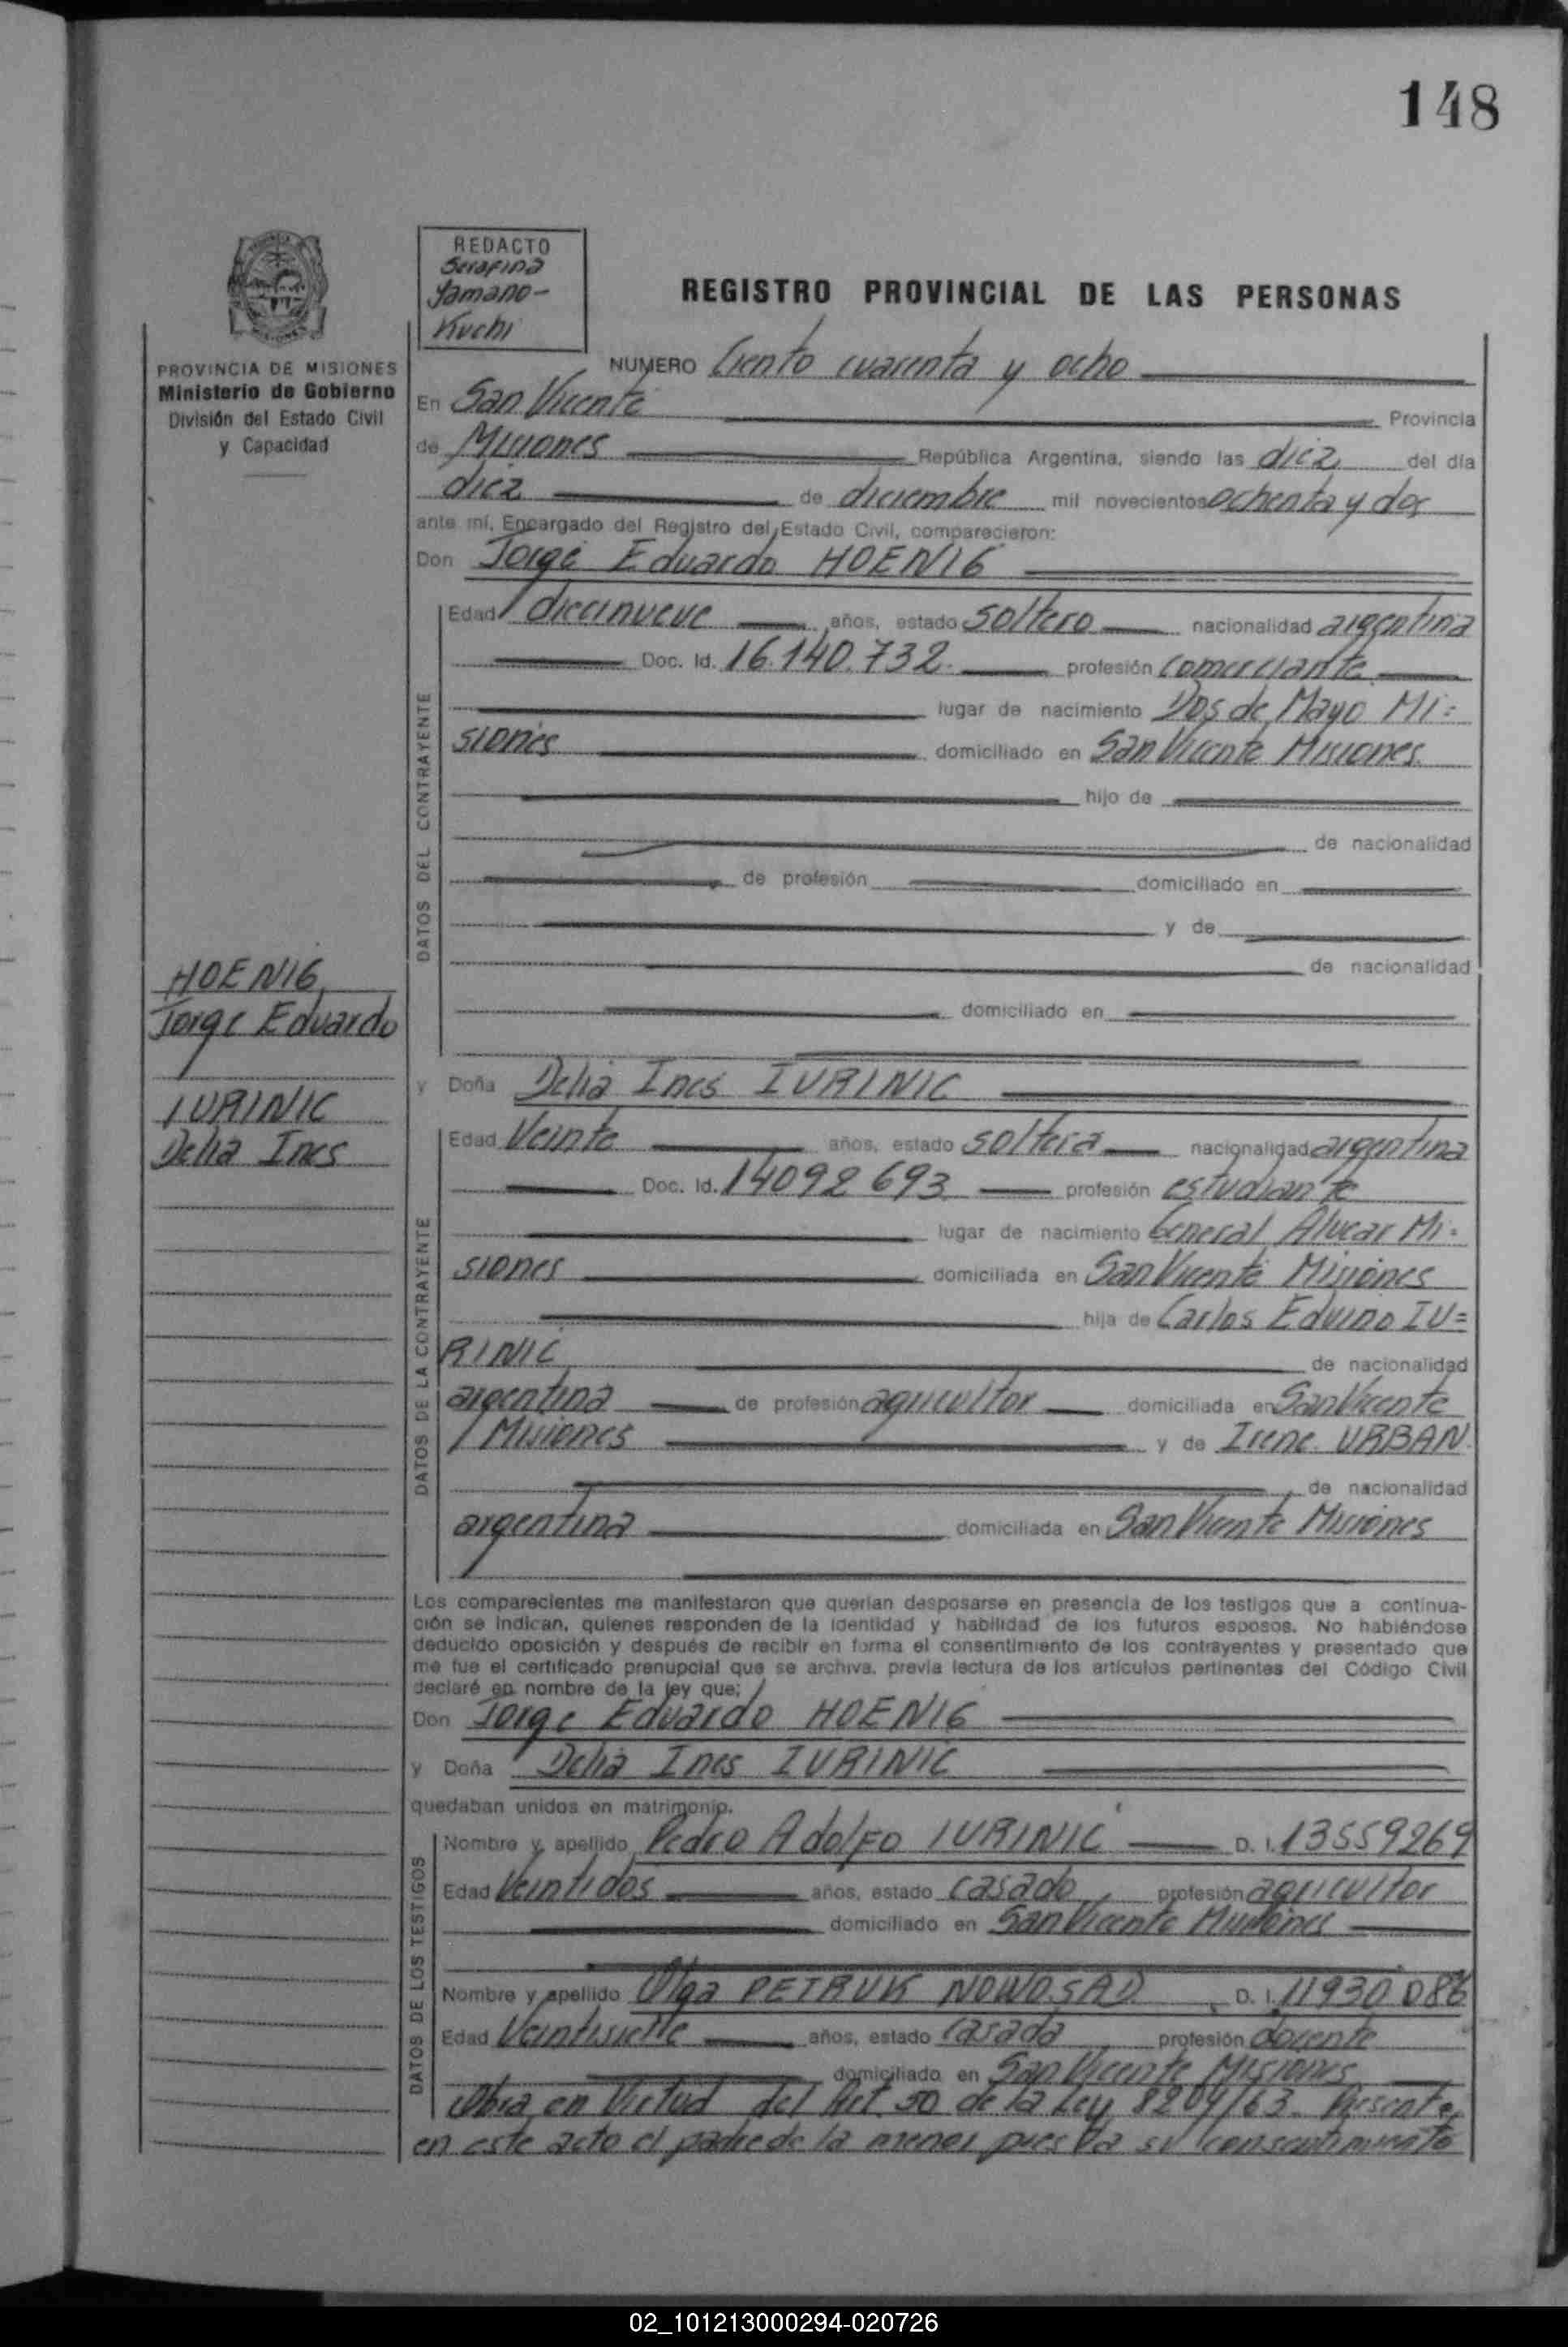 148
REDACTO
Serafina
Yamano-
Kuchi
REGISTRO PROVINCIAL DE LAS PERSONAS
PROVINCIA DE MISIONES
Ministerio de Gobierno
División del Estado Civil
y Capacidad
NUMERO Ciento cuarenta y ocho
En San Vicente Provincia
de Misiones República Argentina, siendo las diez del día
diez de diciembre mil novecientos ochenta y dos
ante mí, Encargado del Registro del Estado Civil, comparecieron:
Don Jorge Eduardo HOENIG
DATOS DEL CONTRAYENTE
Edad diecinueve años, estado soltero nacionalidad argentina
Doc. Id. 16.140.732. profesión comerciante
lugar de nacimiento Dos de Mayo Mi=
siones domiciliado en San Vicente Misiones.
hijo de
de nacionalidad
de profesión domiciliado en
y de
de nacionalidad
domiciliado en
HOENIG
Jorge Eduardo
IURINIC
Delia Ines
y Doña Delia Ines IURINIC
DATOS DE LA CONTRAYENTE
Edad Veinte años, estado soltera nacionalidad argentina
Doc. Id. 14092693 profesión estudiante
lugar de nacimiento General Alvear Mi-
siones domiciliada en San Vicente Misiones
hija de Carlos Edvino IU=
RINIC de nacionalidad
argentina de profesión agricultor domiciliada en San Vicente
Misiones y de Irene URBAN
de nacionalidad
argentina domiciliada en San Vicente Misiones
Los comparecientes me manifestaron que querían desposarse en presencia de los testigos que a continua-
ción se indican, quienes responden de la identidad y habilidad de los futuros esposos. No habiéndose
deducido oposición y después de recibir en forma el consentimiento de los contrayentes y presentado que
me fue el certificado prenupcial que se archiva, previa lectura de los artículos pertinentes del Código Civil
declaré en nombre de la ley que;
Don Jorge Eduardo HOENIG
y Doña Delia Ines IURINIC
quedaban unidos en matrimonio.
DATOS DE LOS TESTIGOS
Nombre y apellido Pedro Adolfo IURINIC D. I. 13559269
Edad Veintidos años, estado casado profesión agricultor
domiciliado en San Vicente Misiones
Nombre y apellido Olga PETRUK NOWOSAD D. I. 11930086
Edad Veintisiete años, estado casada profesión docente
domiciliado en San Vicente Misiones
Obra en Virtud del Art. 50 de la Ley 8204/63. Presente
en este acto el padre de la menor presta su consentimiento
02_101213000294-020726